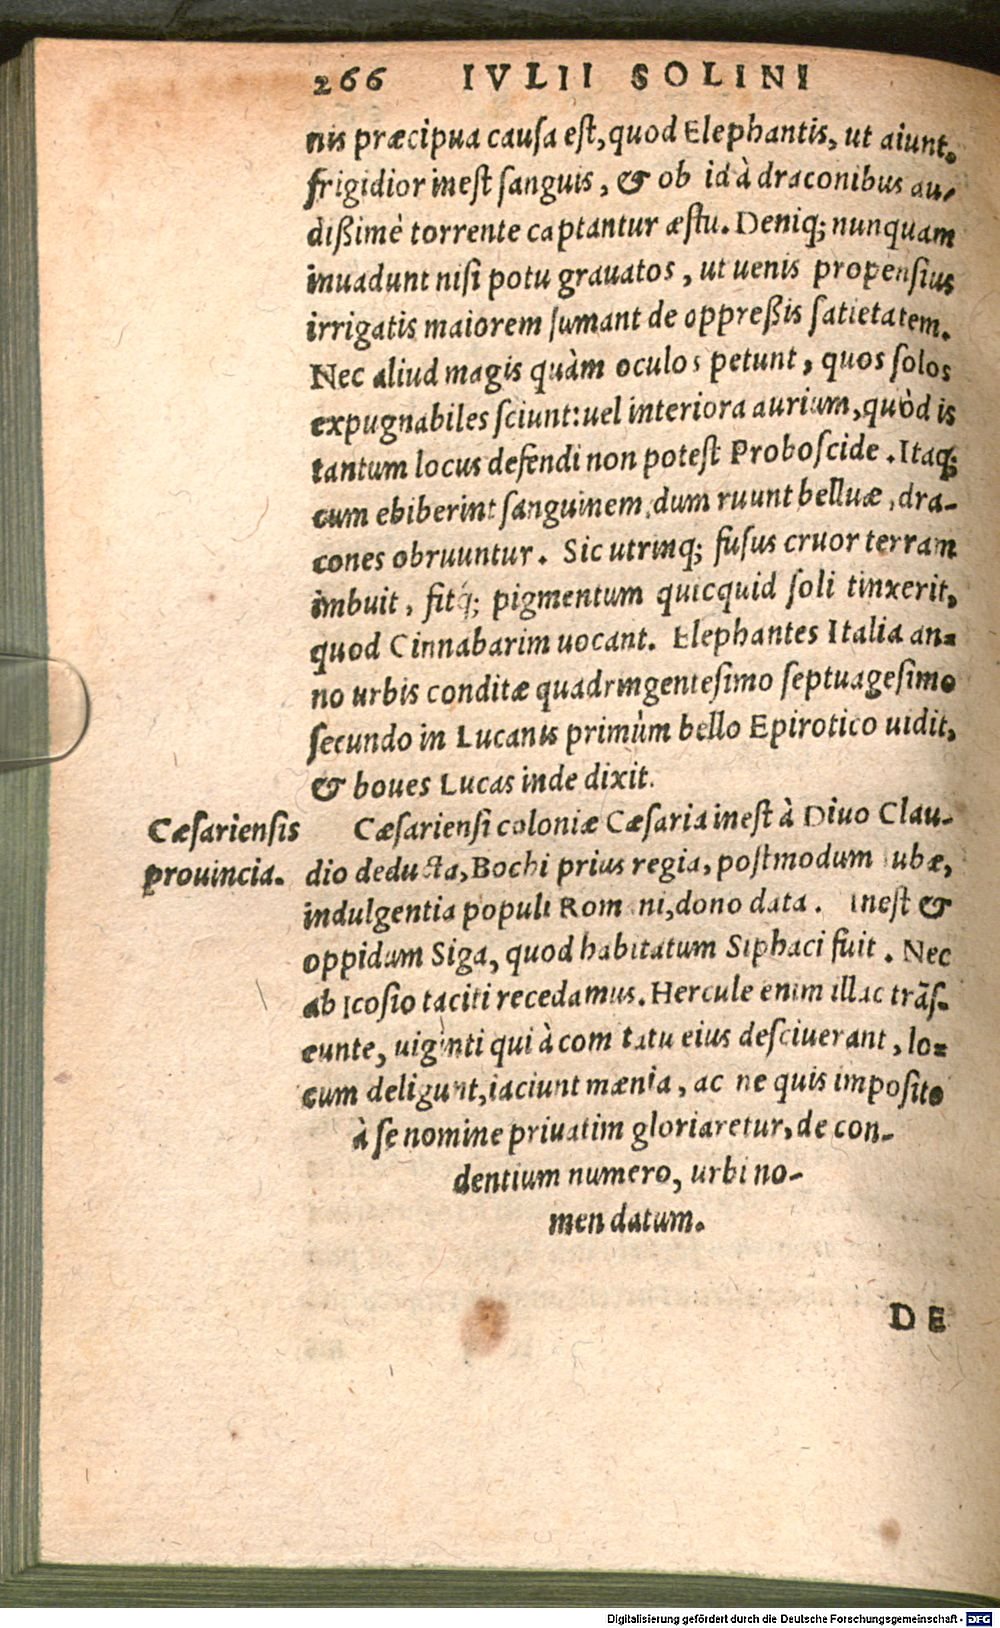 266 IVLII SOLINI
nis præcipua causa est, quod Elephantis, ut aiunt,
frigidior inest sanguis, & ob id à draconibus aui-
dißimè torrente captantur æstu. Deniq; nunquam
inuadunt nisi potu grauatos, ut uenis propensius
irrigatis maiorem sumant de oppreßis satietatem.
Nec aliud magis quàm oculos petunt, quos solos
expugnabiles sciunt: uel interiora aurium, quòd is
tantum locus defendi non potest Proboscide. Itaq;
cum ebiberint sanguinem, dum ruunt belluæ, dra-
cones obruuntur. Sic utrinq; fusus cruor terram
imbuit, fitq́; pigmentum quicquid soli tinxerit,
quod Cinnabarim uocant. Elephantes Italia an-
no urbis conditæ quadringentesimo septuagesimo
secundo in Lucanis primùm bello Epirotico uidit,
& boues Lucas inde dixit.
Cæsariensis
prouincia.
Cæsariensi coloniæ Cæsaria inest à Diuo Clau-
dio deducta, Bocchi prius regia, postmodum Iubæ,
indulgentia populi Romani, dono data. Inest &
oppidum Siga, quod habitatum Siphaci fuit. Nec
ab Icosio taciti recedamus. Hercule enim illac trãs-
eunte, uiginti qui à comitatu eius desciuerant, lo-
cum deligunt, iaciunt mænia, ac ne quis imposito
à se nomine priuatim gloriaretur, de con-
dentium numero, urbi no-
men datum.
DE
Digitalisierung gefördert durch die Deutsche Forschungsgemeinschaft - DFG